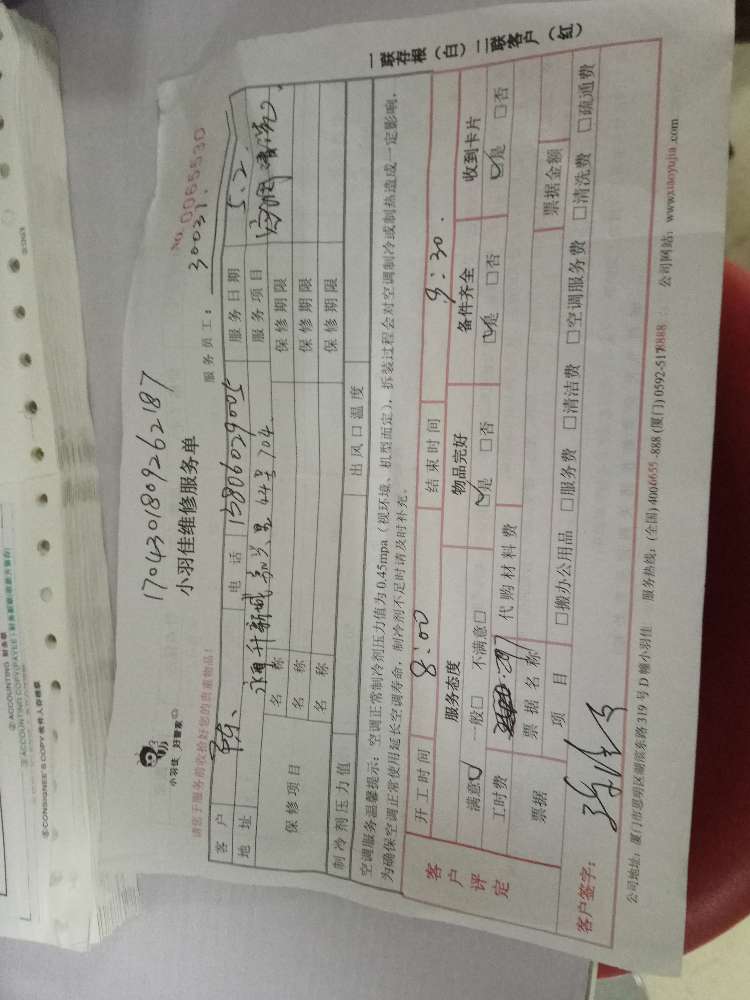 ② ACCOUNTING
③ ACCOUNTING COPY
⑤ CONSIGNEE'S COPY 收件人存根联
17043018092 62187
小羽佳 好管家
小羽佳维修服务单
No. 0065530
请您于服务前收拾好您的贵重物品!
服务员工: 30031.
客户 电话 13806029005 服务日期 5.2.
地址 44号704. 服务项目 空调清洗.
保修项目 名称 保修期限
名称 保修期限
名称 保修期限
制冷剂压力值 出风口温度
空调服务温馨提示: 空调正常制冷剂压力值为0.45mpa (视环境、机型而定), 拆装过程会对空调制冷或制热造成一定影响,
为确保空调正常使用延长空调寿命, 制冷剂不足时请及时补充。
客户评定
开工时间 8:00 结束时间 9:30.
服务态度 物品完好 备件齐全 收到卡片
满意☑ 一般□ 不满意□ ☑是 □否 ☑是 □否 ☑是 □否
工时费 297 代购材料费
票据 票据名称 票据金额
项目 □搬办公用品 □服务费 □清洁费 □空调服务费 □清洗费 □疏通费
客户签字:
公司地址: 厦门市思明区湖滨东路319号D幢小羽佳 服务热线: (全国) 4004655-888 (厦门) 0592-5178888 公司网站: www.xiaoyujia.com
一联存根(白) 二联客户(红)